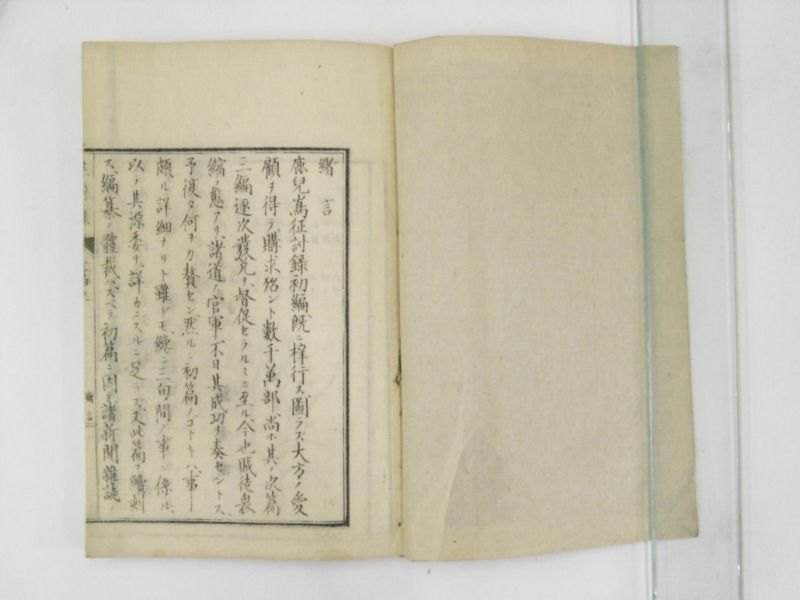 緒言
鹿児嶌征討録初編既ニ梓行ス圖ラズ大方ノ愛
顧ヲ得テ購求殆ント數千萬部尚ホ其ノ次篇
二編逐次發兌ヲ督促セラルヽニ至ル今也賊徒衰
縮ノ態アリ諸道ノ官軍不日其成功ヲ奏セントス
予復タ何ヲカ贅セン然ルニ初篇ノゴトキハ事一
頗ル詳細ナリト雖ドモ纔ニ二三旬間ノ事ニ係ル
以テ其源委ヲ詳カニスルニ足ラズ又此篇ヲ續刻
ス編纂ノ體裁ハスベテ初篇ニ因テ諸新聞雜誌ノ